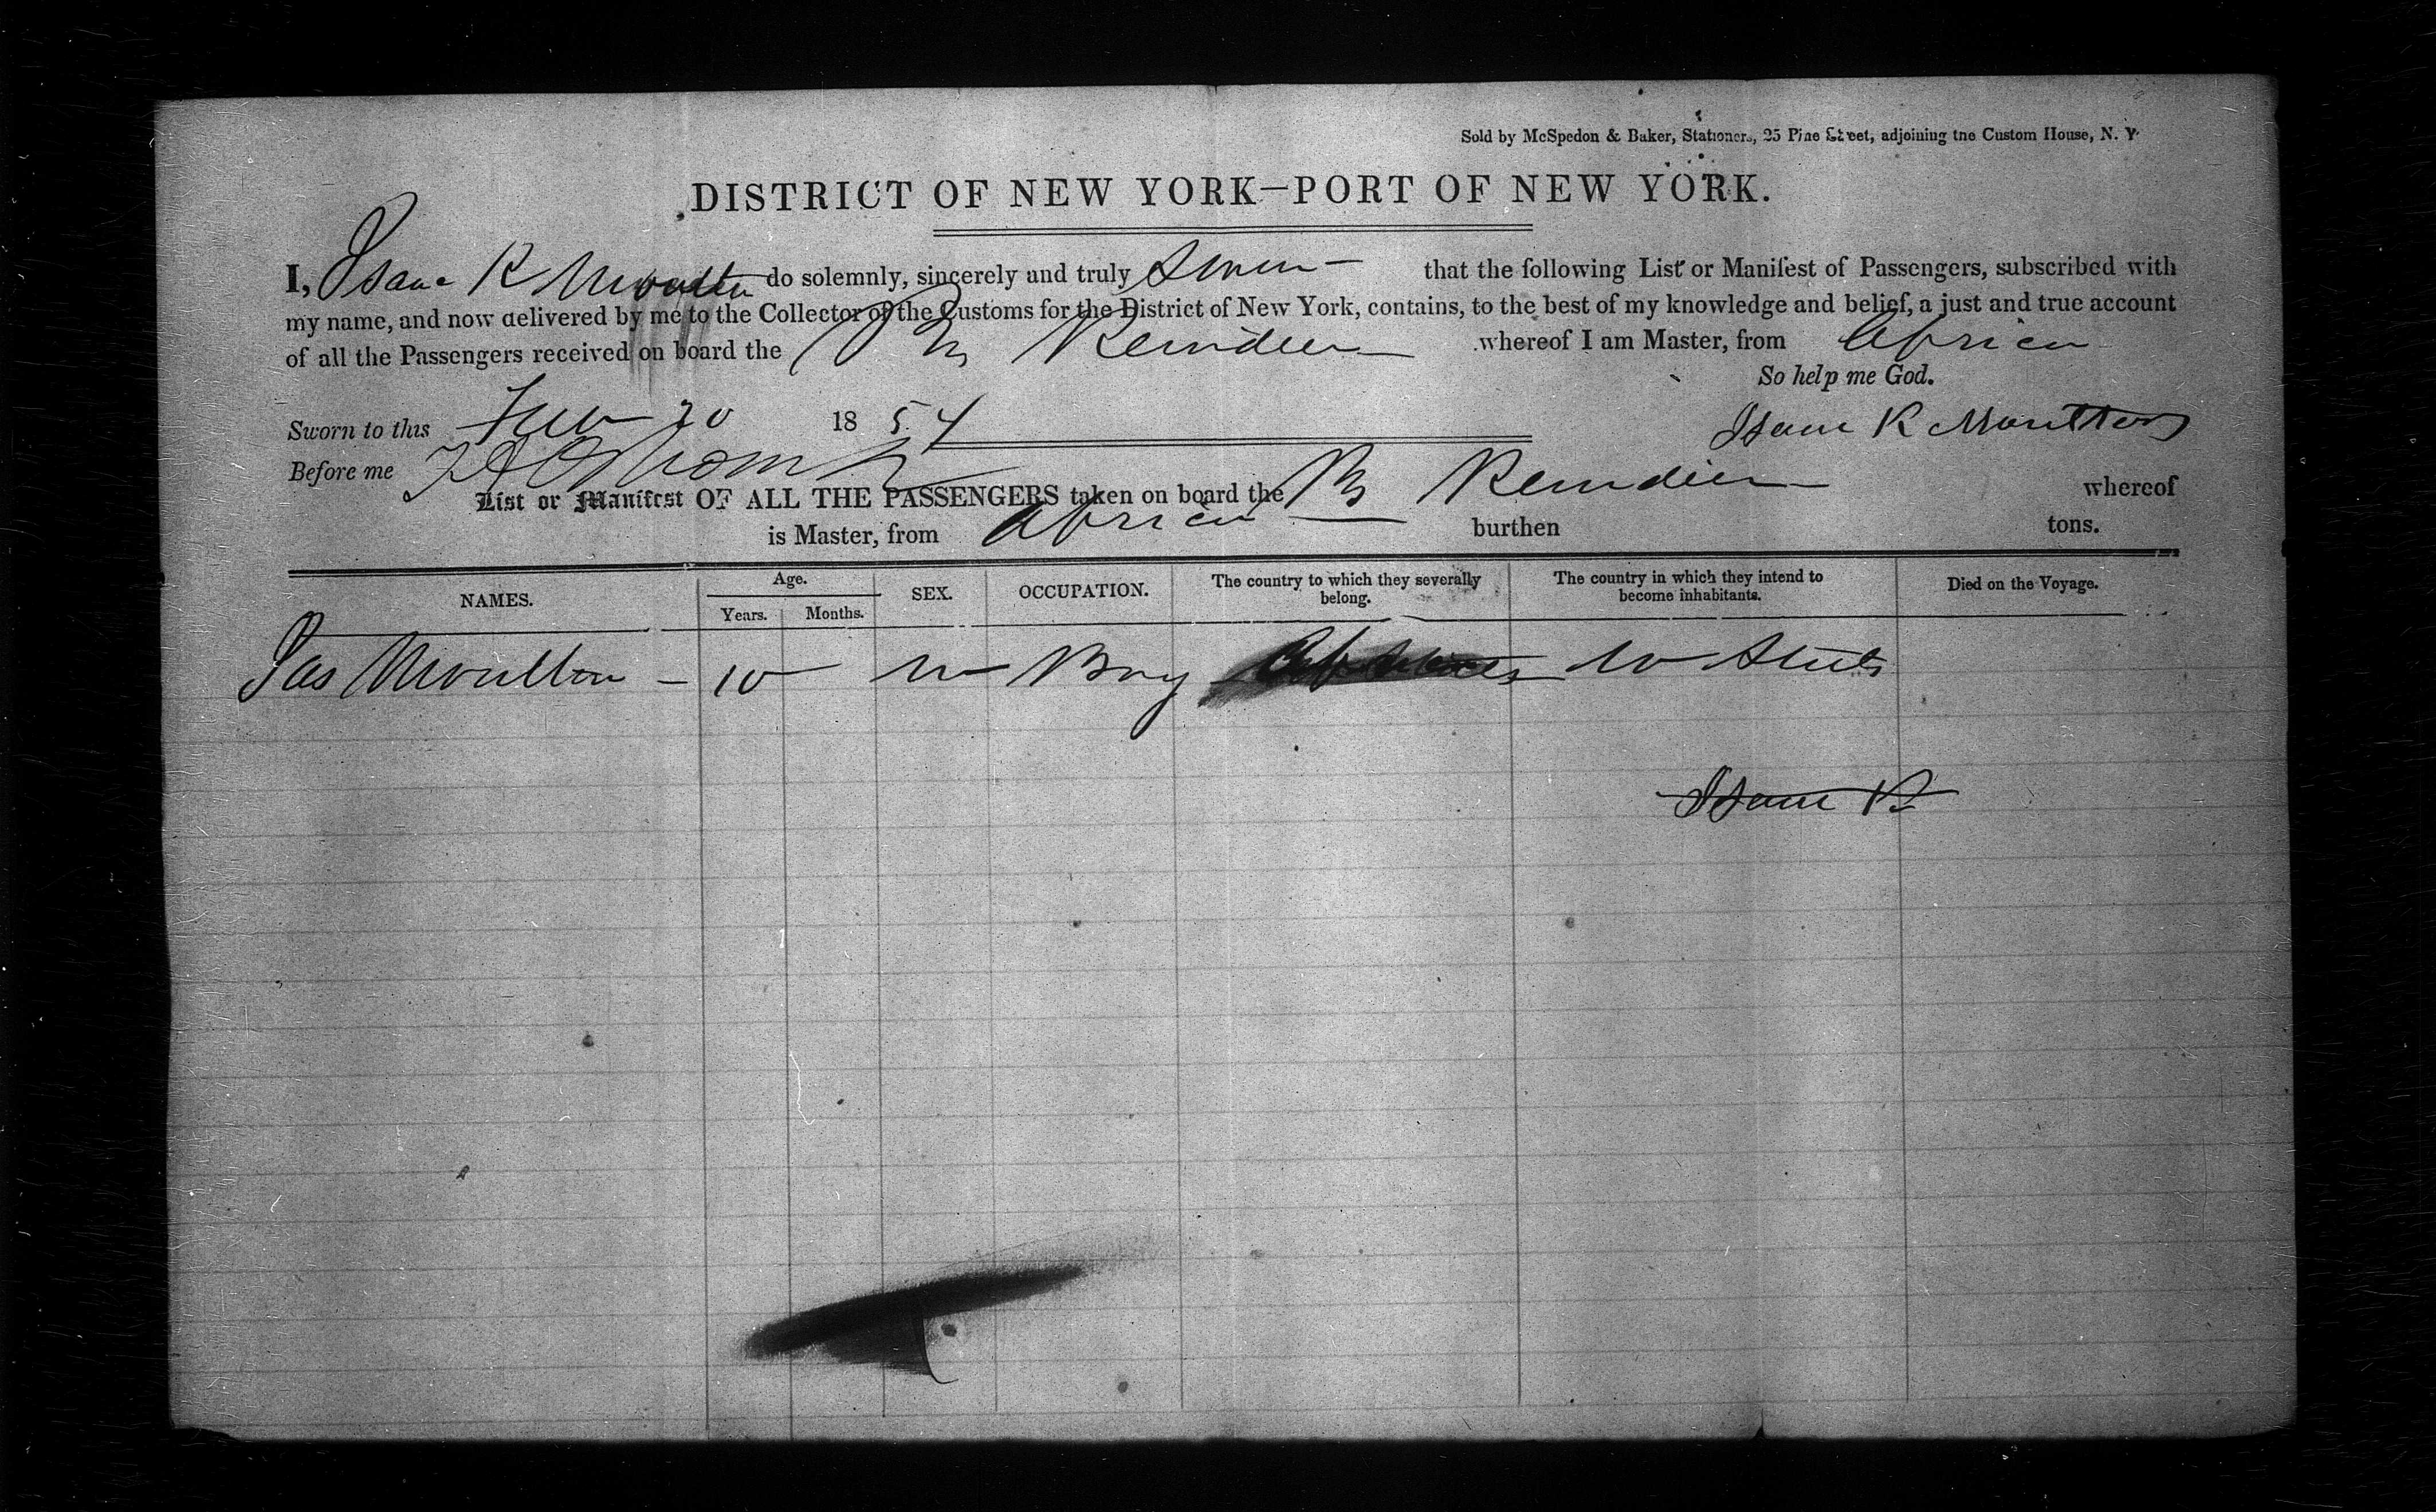 Sold by McSpedon & Baker, Stationers, 25 Pine Street, adjoining the Custom House, N. Y.
DISTRICT OF NEW YORK—PORT OF NEW YORK.
I, Isaac R Moulton do solemnly, sincerely and truly swear that the following List or Manifest of Passengers, subscribed with
my name, and now delivered by me to the Collector of the Customs for the District of New York, contains, to the best of my knowledge and belief, a just and true account
of all the Passengers received on board the Reindeer whereof I am Master, from Africa
So help me God.
Sworn to this 20 1854
Isaac R Moulton
Before me
List or Manifest OF ALL THE PASSENGERS taken on board the Reindeer whereof
is Master, from Africa burthen tons.
NAMES. Age. Years. Months. SEX. OCCUPATION. The country to which they severally belong. The country in which they intend to become inhabitants. Died on the Voyage.
Jas Moulton - 10 m Boy U States
Isaac R